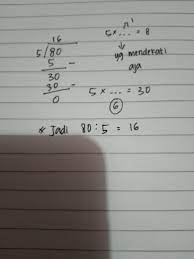 16
5 / 80
5 -
30
30 -
0
5 x ... = 8
yg mendekati
aja
5 x ... = 30
6
* Jadi 80 : 5 = 16